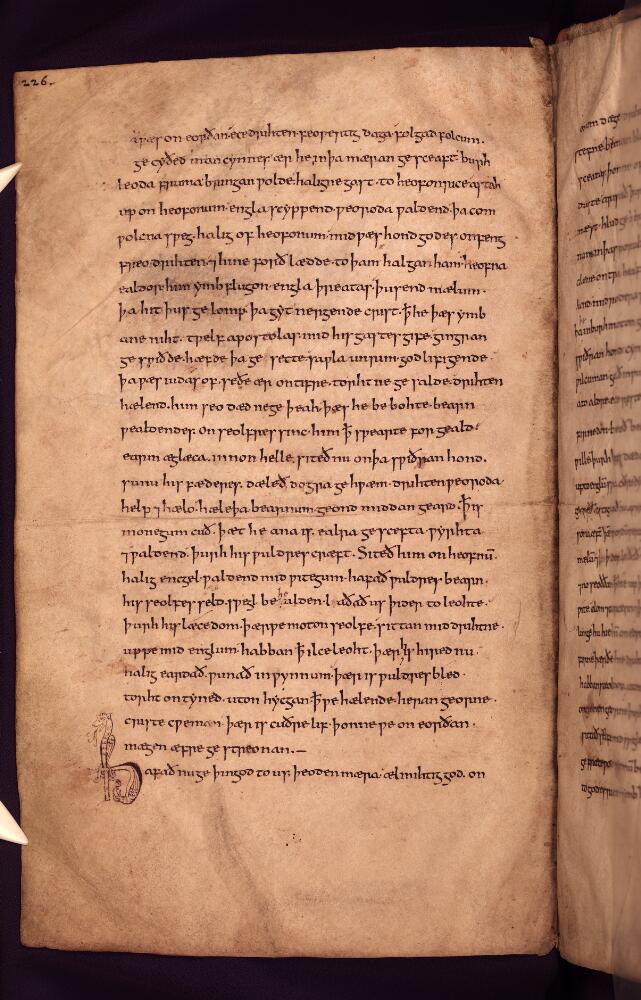 226.
Þa ƿæs on eorðan· ece drihten· feoƿertig daga folgad folcum·
ge cyðed mancynne· ær he in þa mæran ge sceaft· burh
leoda fruma· bringan ƿolde· haligne gast· to heofonrice· astah
up on heofonum· engla scyppend· ƿeoroda ƿaldend· þa com
ƿolcna sƿeg· halig of heofonum· mid ƿæs hond godes onfeng
freo drihten· ⁊ hine forð lædde· to þam halgan ham· heofna
ealdor· him ymb flugon· engla þreatas· þusend mælum·
þa hit þus ge lomp· þa gyt nergende crist· ꝥ he þæs ymb
ane niht· tƿelf apostolas· mid his gastes gife· gingran
ge sƿiðde· hæfde þa ge sette saƿla unrim· god lifigende·
þa ƿæs iudas of· seðe ær on tifre· torht ne ge salde· drihten
hælend· him seo dæd ne ge þeah· þæs he be bohte· bearn
ƿealdendes· on seolfres sinc· him ꝥ sƿearte for geald·
earm æglæca· innon helle· siteð nu on þa sƿiðran hond·
sunu his fæderes· dæleð dogra ge hƿæm· drihten ƿeoroda·
help ⁊ hælo· hæleþa bearnum· geond middan geard· ꝥ is
monegum cuð· þæt he ana is· ealra ge scefta· ƿyrhta
⁊ ƿaldend· þurh his ƿuldres cræft· Siteð him on heofnū·
halig encgel· ƿaldend mid ƿitegum· hafað ƿuldres bearn·
his seolfes seld· sƿegl be healden· laðað us þider to leohte·
þurh his læcedom· þær ƿe moton seolfe· sittan mid drihtne·
uppe mid englum· habban ꝥ ilce leoht· þær his hired nu·
halig eardað· ƿunað in ƿynnum· þær is ƿuldres bled·
torht ontyned· uton hycgan· ꝥ ƿe hælende· heran georne·
criste cƿeman· þær is cuðre lif· þonne ƿe on eorðan·
mægen æfre ge streonan·—
hafað nu ge þingod to us· þeoden mæra· ælmihtig god· on